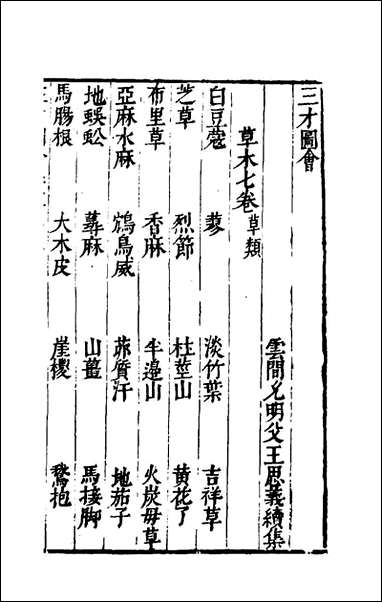 三才圖會
雲間允明父王思義續集
草木七卷 草類
白豆蔻 蓼 淡竹葉 吉祥草
芝草 烈節 杜莖山 黄花了
布里草 香麻 半邉山 火炭母草
亞麻水麻 鴆鳥威 茆質汗 地茄子
地蜈蚣 蕁麻 山薑 馬接脚
馬腸根 大木皮 崖椶 鵞抱